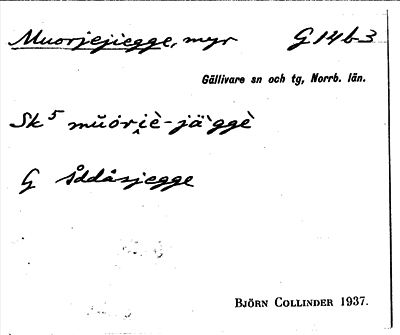 Muorjejiegge, myr G 14 b-3
Gällivare sn och tg, Norrb. län.
Sk 5 mŭori̭è-jä`ggè
G Åddåsjegge
BJÖRN COLLINDER 1937.